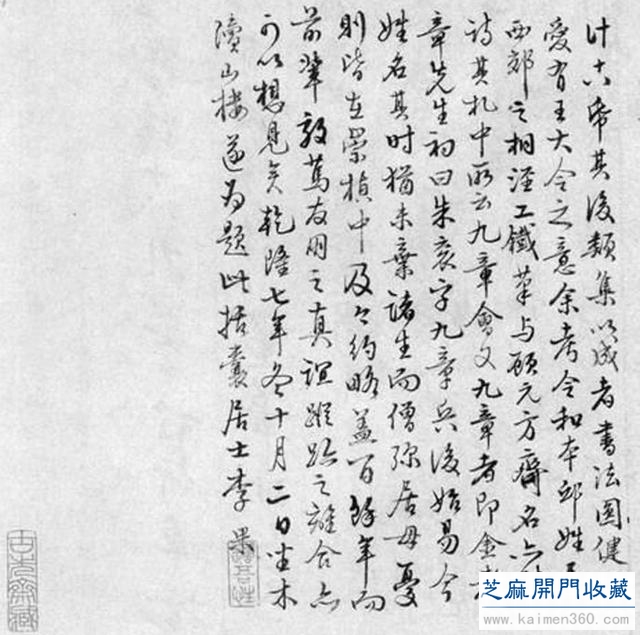 计六帋其後類集以成者書法圓健
愛有王大令之意余考令和本邱姓
西郊之桐涇工鐵筆与顾元方齊名
詩其札中所云九章會文九章者即金
章先生初曰朱衮字九章兵後始易今
姓名其时猶未棄諸生而僧弥居母憂
則皆在崇禎中及今約略蓋百餘年而
前輩敦篤友朋之真誼蹤跡之離合
可以想見矣乾隆七年冬十月二日坐木
牘山樓遂为題此括囊居士李果
芝麻開門收藏
www.kaimen360.com